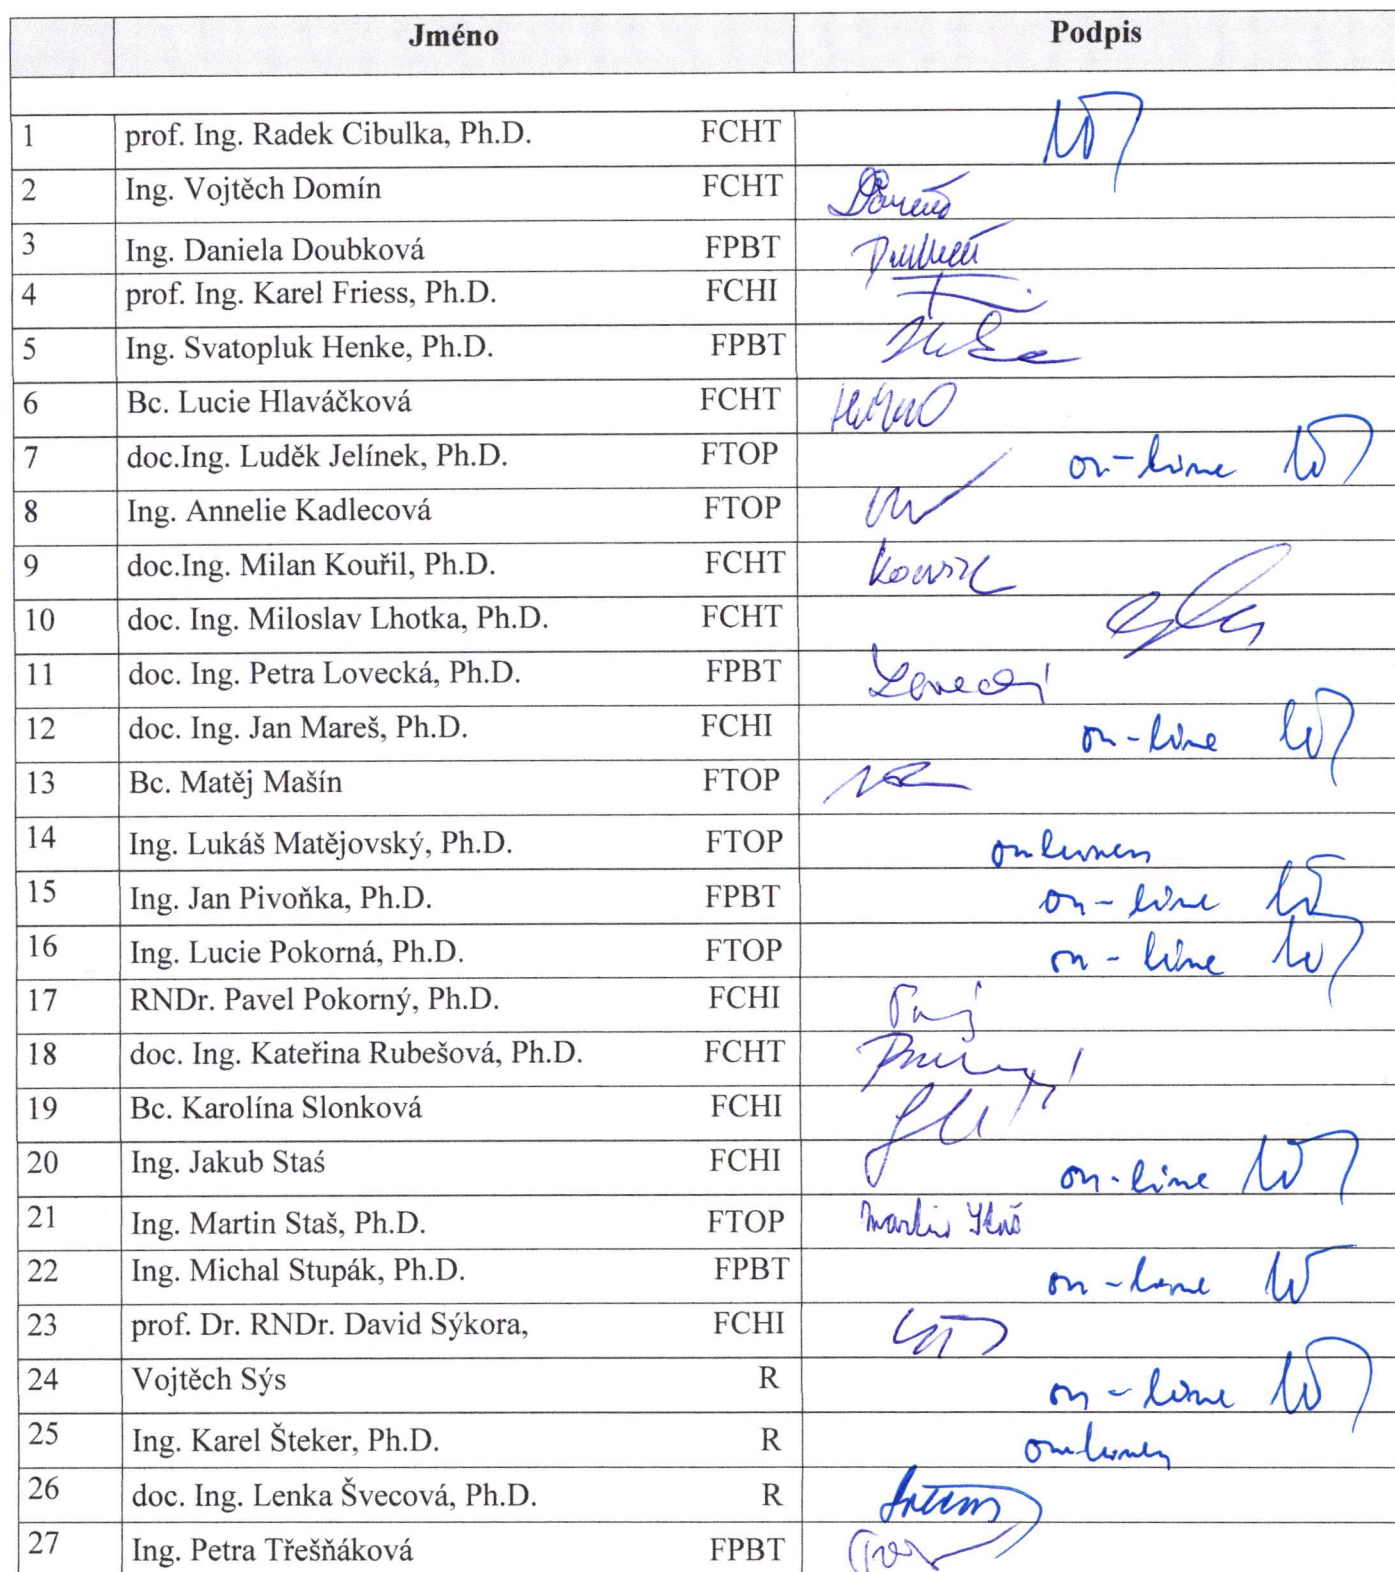 Jméno Podpis
1 prof. Ing. Radek Cibulka, Ph.D. FCHT
2 Ing. Vojtěch Domín FCHT
3 Ing. Daniela Doubková FPBT
4 prof. Ing. Karel Friess, Ph.D. FCHI
5 Ing. Svatopluk Henke, Ph.D. FPBT
6 Bc. Lucie Hlaváčková FCHT
7 doc.Ing. Luděk Jelínek, Ph.D. FTOP on-line
8 Ing. Annelie Kadlecová FTOP
9 doc.Ing. Milan Kouřil, Ph.D. FCHT Kouřil
10 doc. Ing. Miloslav Lhotka, Ph.D. FCHT
11 doc. Ing. Petra Lovecká, Ph.D. FPBT
12 doc. Ing. Jan Mareš, Ph.D. FCHI on-line
13 Bc. Matěj Mašín FTOP
14 Ing. Lukáš Matějovský, Ph.D. FTOP omluven
15 Ing. Jan Pivoňka, Ph.D. FPBT on-line
16 Ing. Lucie Pokorná, Ph.D. FTOP on-line
17 RNDr. Pavel Pokorný, Ph.D. FCHI
18 doc. Ing. Kateřina Rubešová, Ph.D. FCHT
19 Bc. Karolína Slonková FCHI
20 Ing. Jakub Staś FCHI on-line
21 Ing. Martin Staš, Ph.D. FTOP Martin Staš
22 Ing. Michal Stupák, Ph.D. FPBT on-line
23 prof. Dr. RNDr. David Sýkora, FCHI
24 Vojtěch Sýs R on-line
25 Ing. Karel Šteker, Ph.D. R omluven
26 doc. Ing. Lenka Švecová, Ph.D. R
27 Ing. Petra Třešňáková FPBT